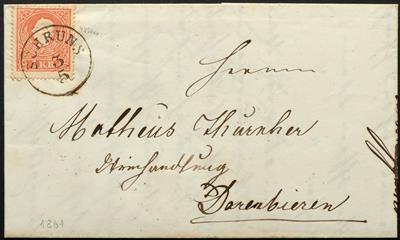 SCHRUNS
3/5
5 KR
Herrn
Matheus Thurnher
Weinhandlung
Dorenbieren
1861